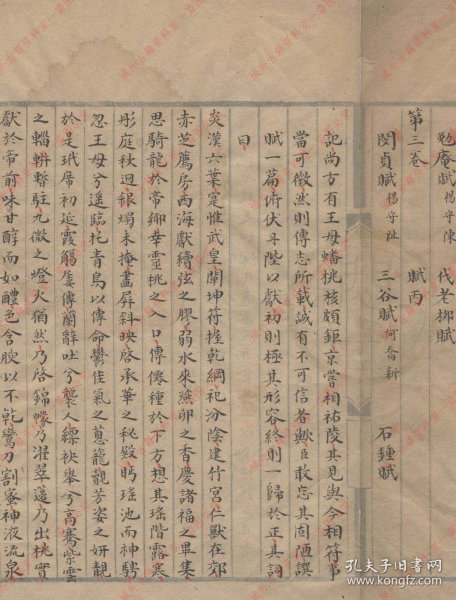 勉齋賦 楊守陳 伐老栁賦
第三卷 賦丙
閔貞賦 楊守阯 三谷賦 何喬新 石鍾賦
記尚方有王母蟠桃核頗鉅京嘗相祐陵其見與今相符事
當可徵然則傳志所載誠有不可信者歟臣敢忘其固陋譔
賦一篇俯伏丹陛以獻初則極其形容終則一歸於正其詞
曰
炎漢六葉寔惟武皇闡坤符握乾綱祀汾陰建竹宮仁獸在郊
赤芝薦房西海獻續弦之膠弱水來燕卵之香慶諸福之畢集
思騎龍於帝鄉幸靈桃之入口傳僊種於下方想其瑤階露寒
彤庭秋迥銀燭未掩畫屏斜映啓承華之秘殿眄瑤池而神騁
忽王母兮遥臨托青鳥以傳命欝佳氣之蔥蘢覩芳姿之妍靚
於是玳席初延霞觴屢傳蘭辭吐兮襲人縹袂舉兮高騫紫雲
之輜輧暫駐九微之燈火猶然乃啓錦幪乃濯翠蓮乃出桃實
獻於帝前味甘醇而如醴色含腴以不乾鸞刀割蜜神液流泉
孔夫子旧书网
www.kongfz.com